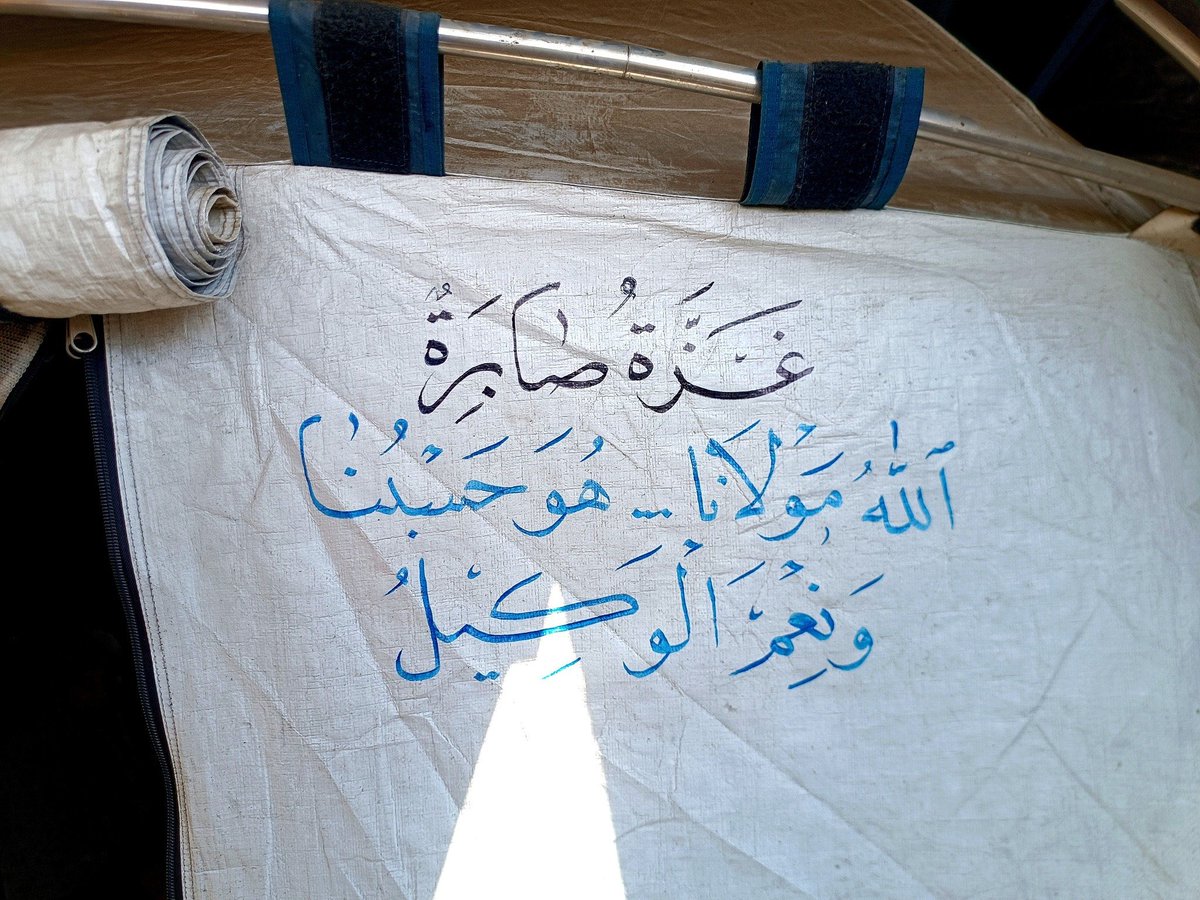 غَزَّةُ صَابِرَةٌ
ٱللّٰهُ مَوْلَانَا... هُوَ حَسْبُنَا
وَنِعْمَ الْوَكِيْلُ